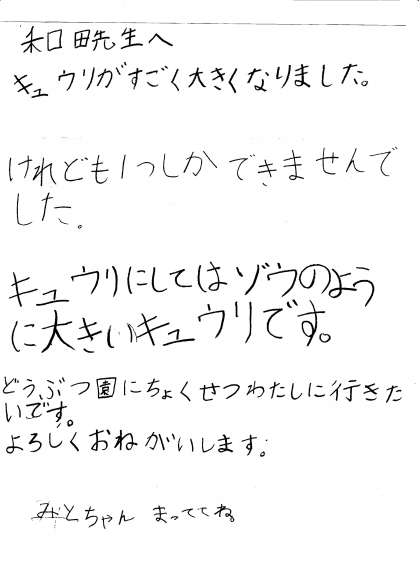 和田先生へ
キュウリがすごく大きくなりました。
けれども1つしかできませんで
した。
キュウリにしてはゾウのよう
に大きいキュウリです。
どうぶつ園にちょくせつわたしに行きた
いです。
よろしくおねがいします。
みとちゃん まっててね